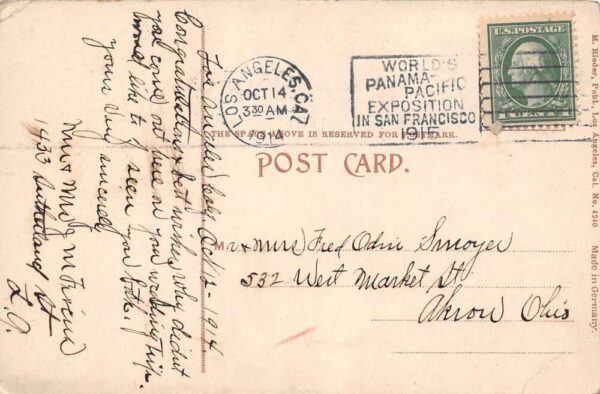 Los Angeles Cal, Oct 12 - 1914
Congratulations & best wishes, why didn't
you come out here on your wedding trip.
would like to of seen you both,
yours very sincerely
Mr & Mrs
1433 Sutherland St
L.A.
LOS ANGELES, CAL
OCT 14
3 30 AM
1914
WORLD'S
PANAMA-
PACIFIC
EXPOSITION
IN SAN FRANCISCO
U.S. POSTAGE
THE SPACE ABOVE IS RESERVED FOR POSTMARK.
POST CARD.
Mr & Mrs Fred Odin Smoyer
532 West Market St.
Akron Ohio
M. Rieder, Publ., Los Angeles, Cal. No. 4240 Made in Germany.